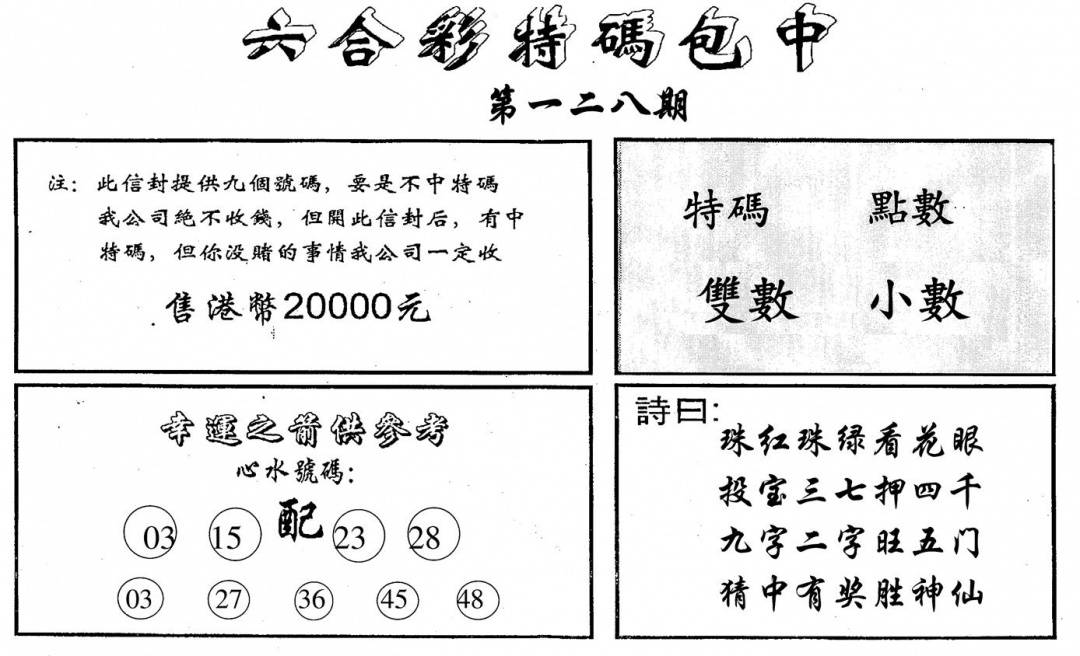 六合彩特碼包中
第一二八期
注：此信封提供九個號碼，要是不中特碼
我公司絕不收錢，但開此信封后，有中
特碼，但你没賭的事情我公司一定收
售港幣20000元
特碼 點數
雙數 小數
幸運之箭供參考
心水號碼：
03 15 配 23 28
03 27 36 45 48
詩曰：
珠红珠绿看花眼
投宝三七押四千
九字二字旺五门
猜中有奖胜神仙